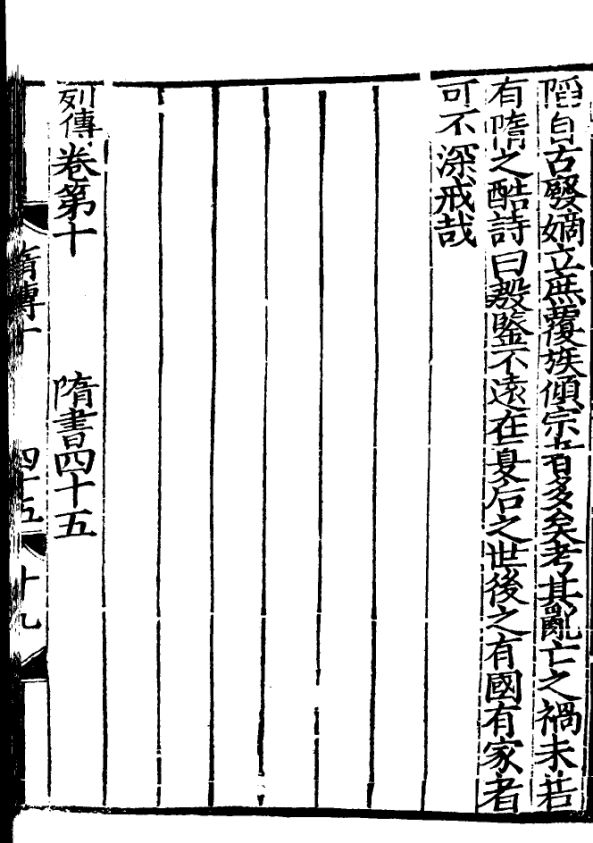 陷自古廢嫡立庶覆族傾宗者多矣考其亂亡之禍未若
有隋之酷詩曰殷鑒不遠在夏后之世後之有國有家者
可不深戒哉
列傳卷第十　隋書四十五
隋傳十　四十五　十九